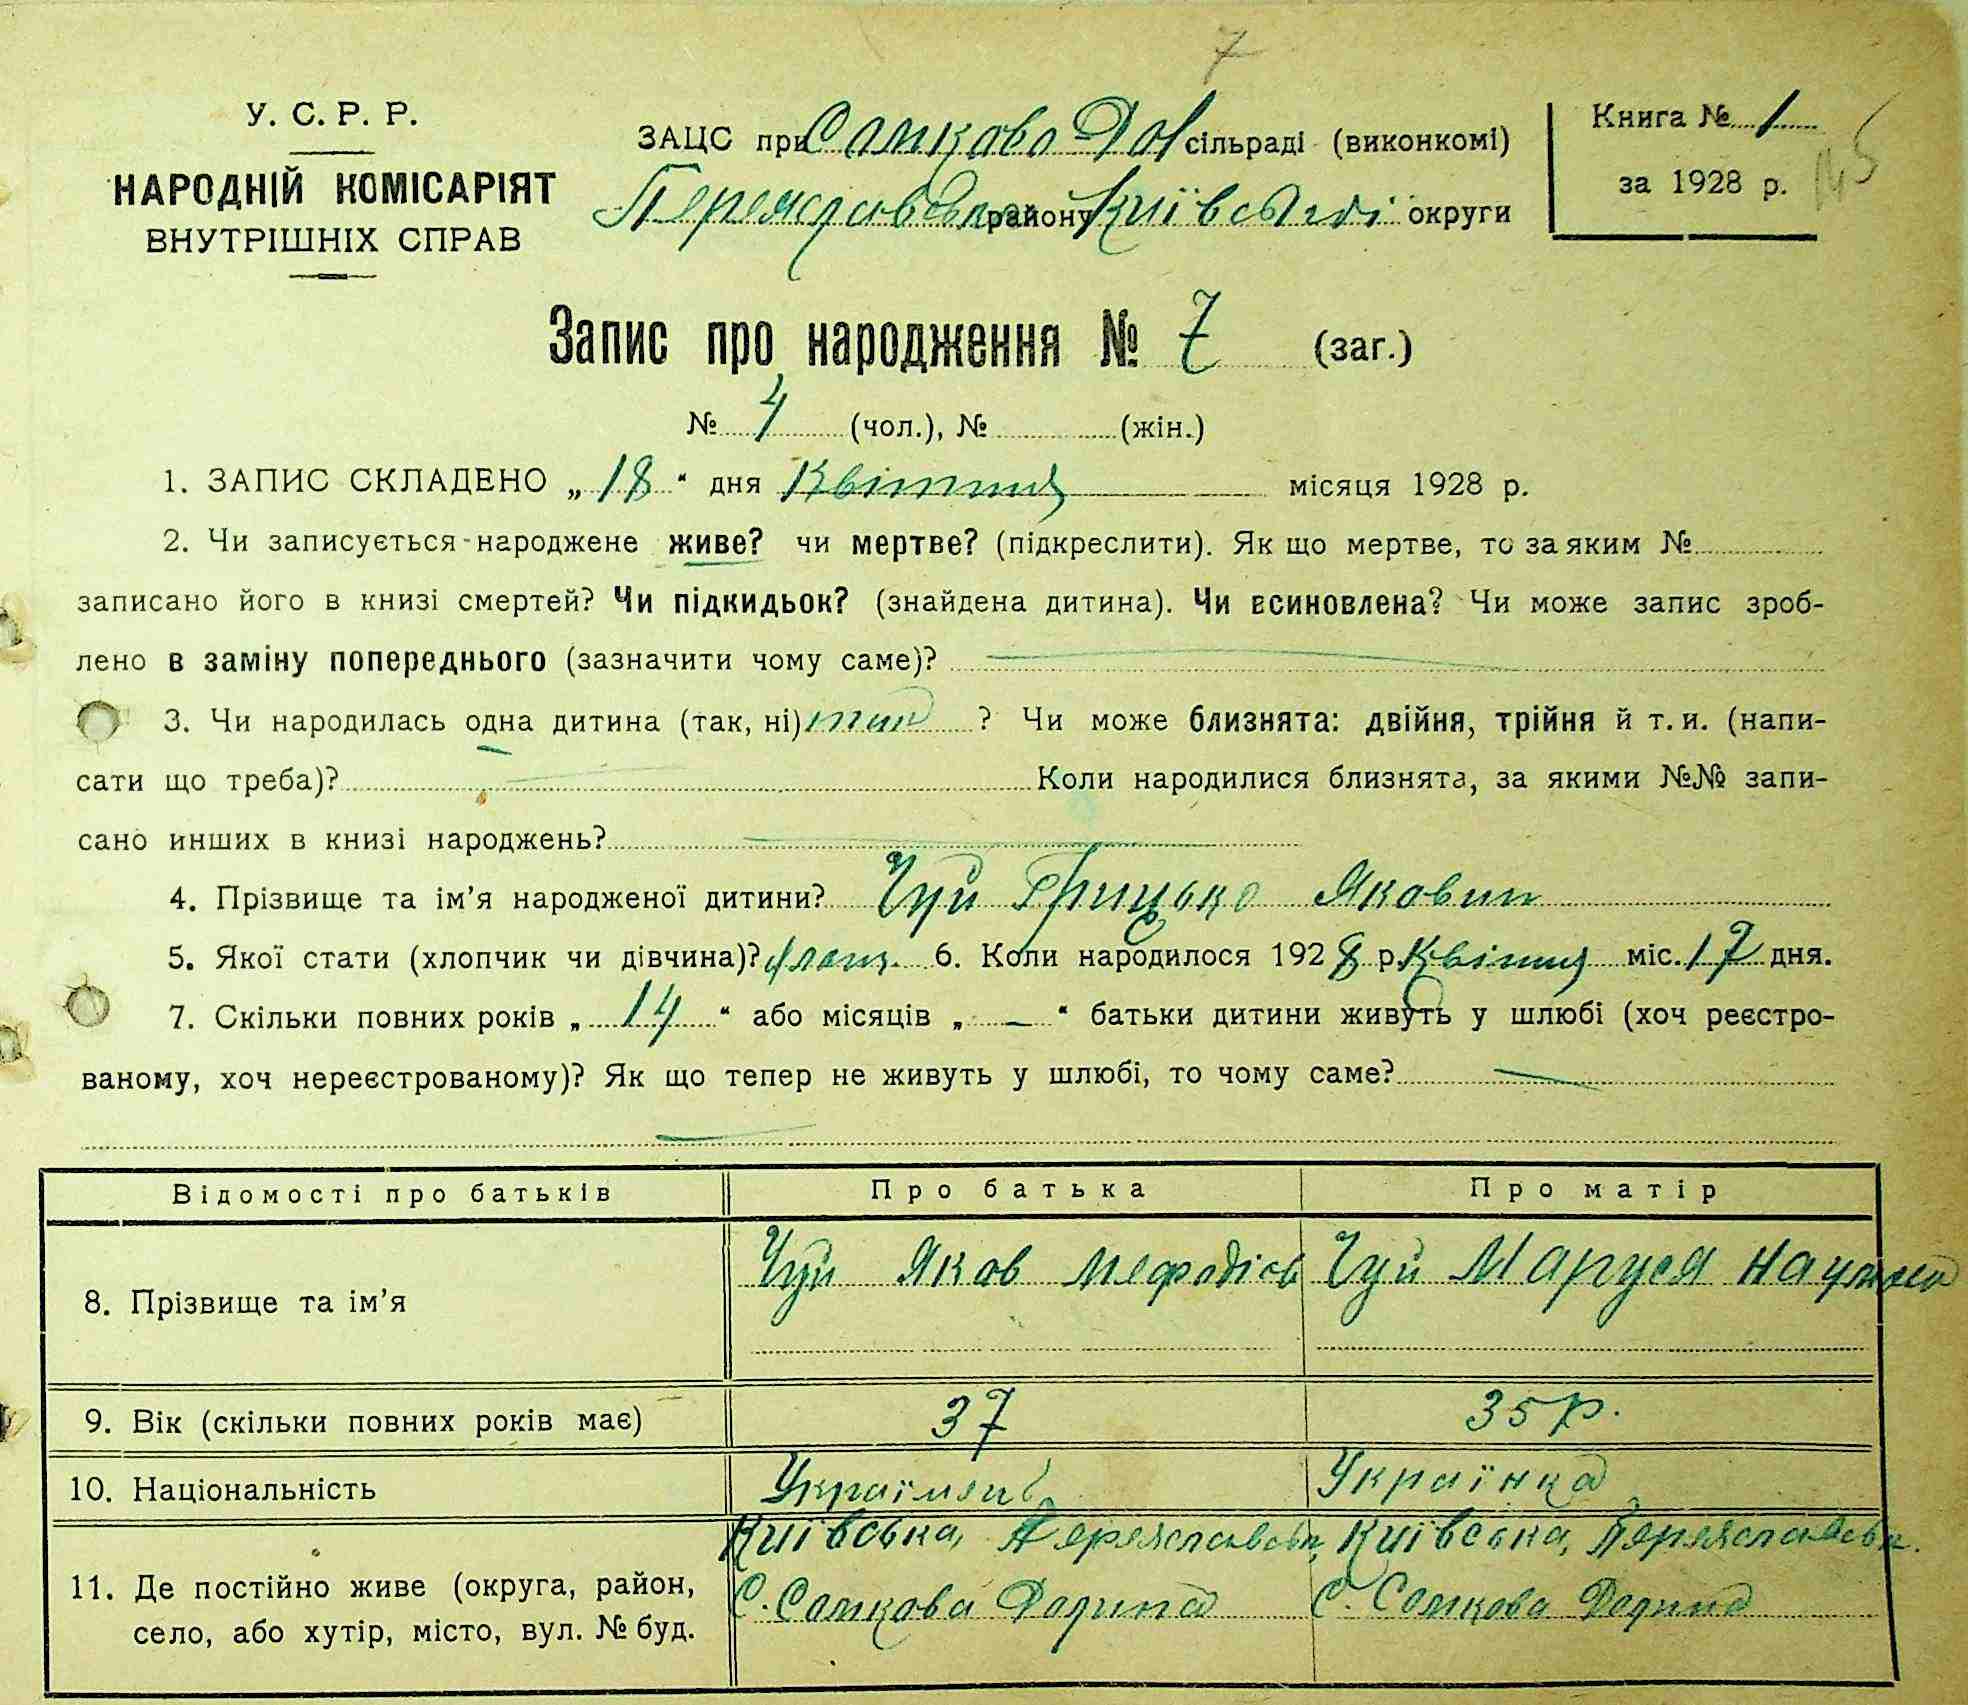 7
У. С. Р. Р.
НАРОДНІЙ КОМІСАРІЯТ
ВНУТРІШНІХ СПРАВ
ЗАЦС при Сомково Дол сільраді (виконкомі)
Переяславсько району Київської округи
Книга № 1
за 1928 р.
145
Запис про народження № 7 (заг.)
№ 4 (чол.), № (жін.)
1. ЗАПИС СКЛАДЕНО „18“ дня Квітня місяця 1928 р.
2. Чи записується народжене живе? чи мертве? (підкреслити). Як що мертве, то за яким №
записано його в книзі смертей? Чи підкидьок? (знайдена дитина). Чи всиновлена? Чи може запис зроб-
лено в заміну попереднього (зазначити чому саме)?
3. Чи народилась одна дитина (так, ні) так ? Чи може близнята: двійня, трійня й т. и. (напи-
сати що треба)? Коли народилися близнята, за якими №№ запи-
сано инших в книзі народжень?
4. Прізвище та ім’я народженої дитини? Чуй Грицько Яковин
5. Якої стати (хлопчик чи дівчина)? хлопч. 6. Коли народилося 1928 р. Квітня міс. 17 дня.
7. Скільки повних років „14“ або місяців „—“ батьки дитини живуть у шлюбі (хоч реєстро-
ваному, хоч нереєстрованому)? Як що тепер не живуть у шлюбі, то чому саме?
Відомості про батьків Про батька Про матір
8. Прізвище та ім’я Чуй Яков Мефодієв Чуй Маруся Наумова
9. Вік (скільки повних років має) 37 35 р.
10. Національність Українець Українка
11. Де постійно живе (округа, район,
село, або хутір, місто, вул. № буд.
Київська, Переяславськ. Київська, Переяславськ.
С. Сомкова Долина С. Сомкова Долина